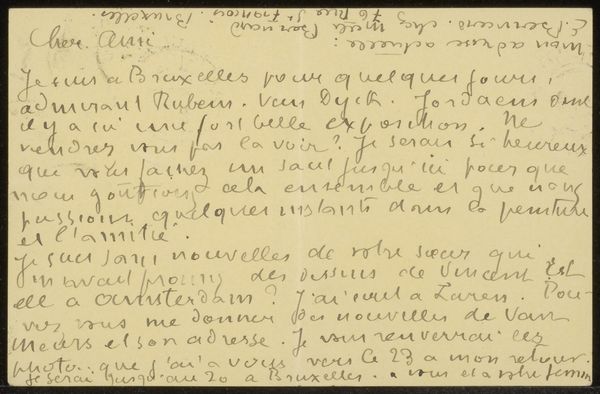 mon adresse actuelle :
E. Bernard. chez Mele Bernard
76 Rue St François. Bruxelles.
Cher Ami
Je suis à Bruxelles pour quelques jours,
admirant Rubens. Van Dyck. Jordaens dont
il y a ici une fort belle exposition. Ne
viendrez vous pas la voir? Je serais si heureux
que vous fassiez un saut jusqu'ici pour que
nous goûtions cela ensemble et que nous
passions quelques instants dans la peinture
et l'amitié.
Je suis sans nouvelles de votre sœur qui
m'avait promis des dessins de Vincent Est
elle à Amsterdam? J'ai écrit à Laren. Pou-
vez vous me donner des nouvelles de Van
Meurs et son adresse. Je vous renverrai les
photo. que j'ai à vous vers le 23 à mon retour.
Je serai jusqu'au 20 à Bruxelles. à vous et à votre femme